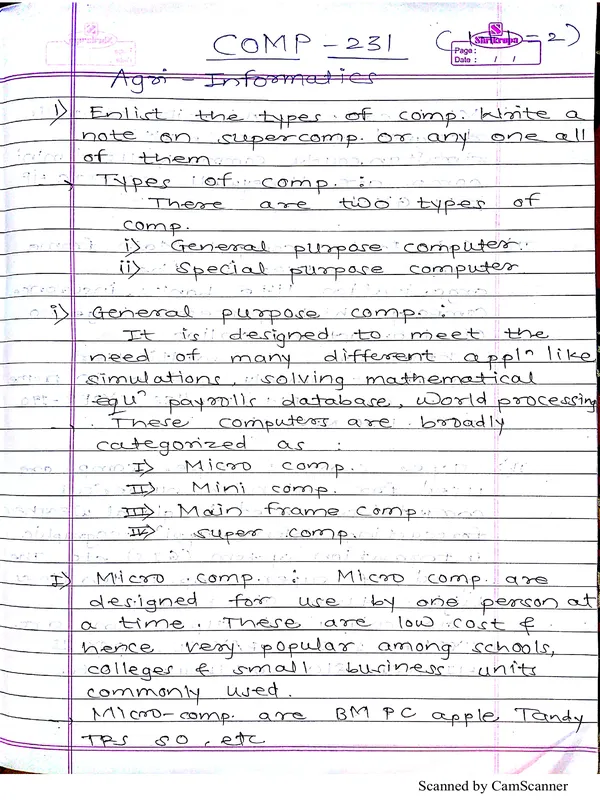 COMP - 231
( 1+1=2)
Shrikrupa
Page :
Date : / /
Agri - Informatics
1) Enlist the types of comp. Write a
note on supercomp. or any one all
of them.
Types of comp. :
There are two types of
comp.
i) General purpose computer.
ii) Special purpose computer
i) General purpose comp. :
It is designed to meet the
need of many different appln like
simulations, solving mathematical
equn payrolls database, world processing
These computers are broadly
categorized as :
I) Micro comp.
II) Mini comp.
III) Main frame comp
IV) super comp.
I) Micro comp. : Micro comp. are
designed for use by one person at
a time. These are low cost &
hence very popular among schools,
colleges & small business units
commonly used.
Micro-comp. are BM PC apple Tandy
TRS 80, etc
Scanned by CamScanner